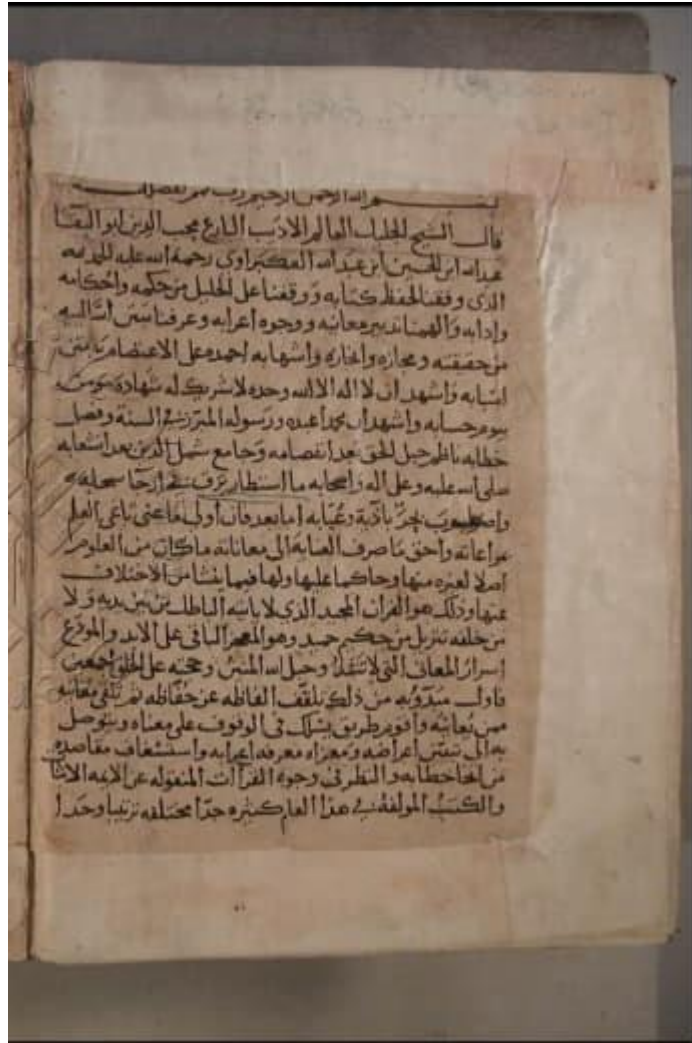 بسم الله الرحمن الرحيم رب تمم بفضلك
قال الشيخ الجليل العالم الاديب البارع محب الدين ابو البقا
عبد الله ابن الحسين ابن عبد الله العكبراوي رحمة الله عليه الحمد لله
الذى وفقنا لحفظ كتابه ووقفنا على الجليل من حكمه واحكامه
وادابه والهمنا تدبير معانيه ووجوه اعرابه وعرفنا تفنن أساليبه
من حقيقته ومجازه وايجازه واسهابه احمده على الاعتصام بامتن
اسبابه واشهد ان لا اله الا الله وحده لا شريك له شهادة مومن
بيوم حسابه واشهد ان محمدا عبده ورسوله المبرز في السنة وفصل
خطابه ناظم حبل الحق بعد انفصامه وجامع شمل الدين بعد انشعابه
صلى الله عليه وعلى اله واصحابه ما استطار برق في ارجا سحابه
واضطرب بحر باذية وعبابه اما بعد فان أولى ما عنى باغى العلم
مراعاته واحق ما صرف العناية الى معاناته ما كان من العلوم
اصلا لغيره منها وحاكما عليها ولها فيما ينشا من الاختلاف
عنها وذلك هو القران المجيد الذى لا ياتيه الباطل من بين يديه ولا
من خلفه تنزيل من حكيم حميد وهو المعجز الباقى على الابد والمودع
اسرار المعانى التى لا تنفد وحبل الله المتين وحجته على الخلق اجمعين
فاول مبدوبه من ذلك تلقف الفاظه عن حفاظه ثم تلقى معانيه
ممن يعانيه واقوم طريق يسلك في الوقوف على معناه ويتوصل
به الى تبيين أغراضه ومغزاه معرفه إعرابه واستشفاف مقاصده
من انحا خطابه والنظر في وجوه القراات المنقوله عن الايمه الاثبات
والكتب المولفة في هذا العلم كثيره جدا مختلفه ترتيبا وحدا